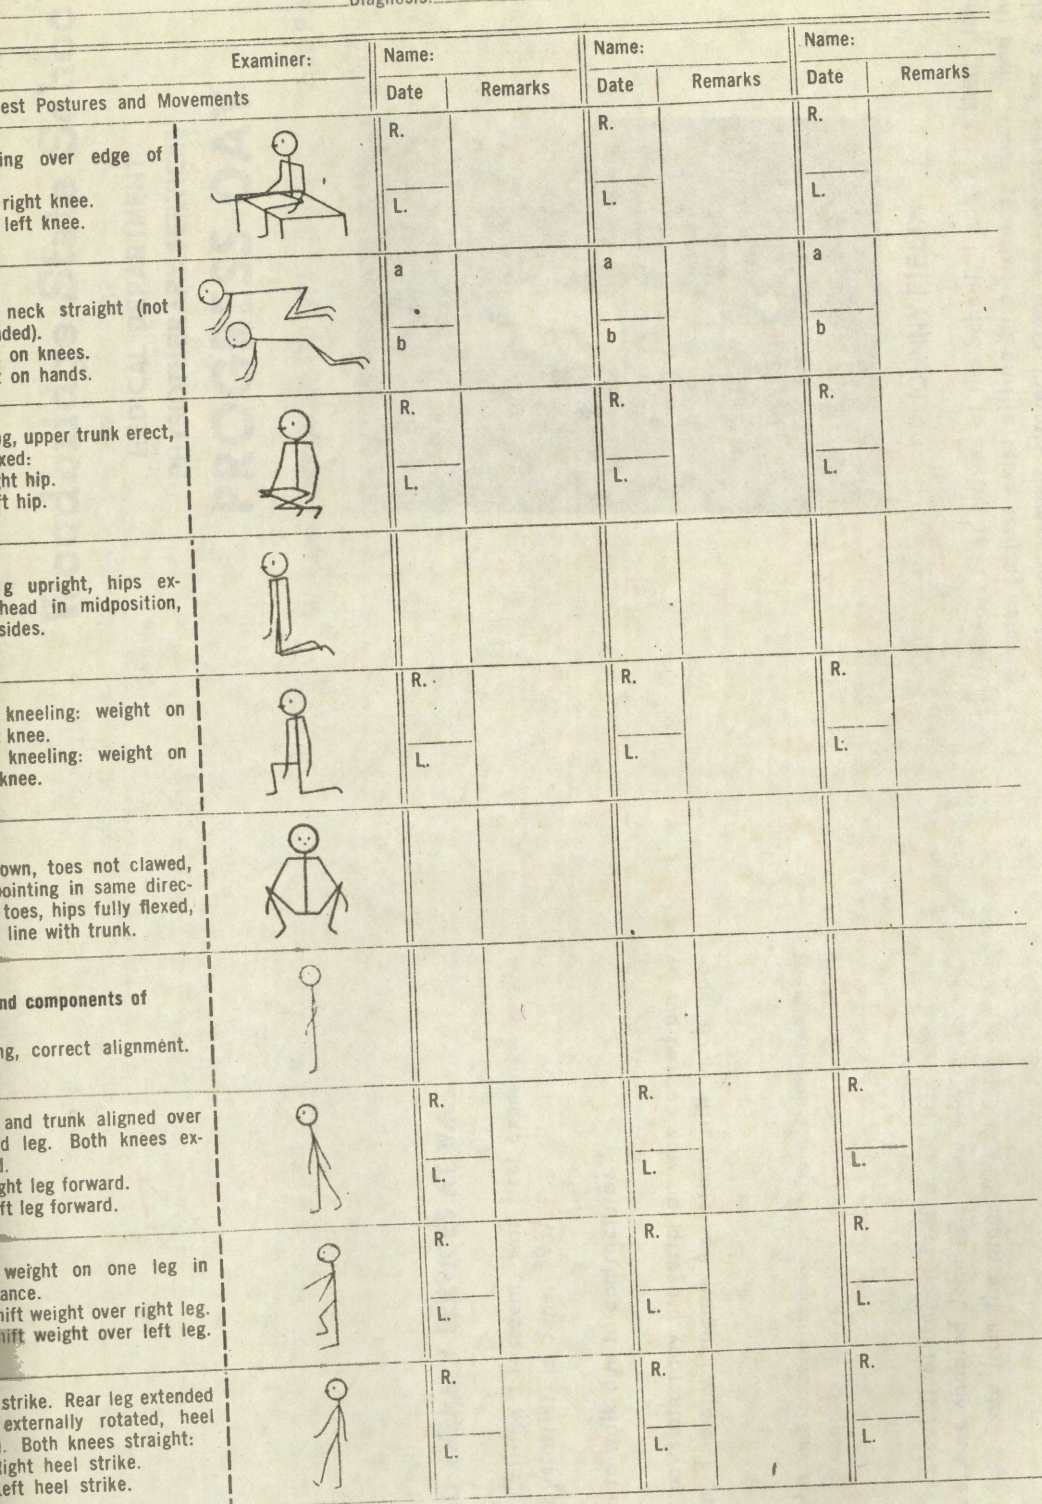 Diagnosis:
Examiner: Name: Name: Name:
Postures and Movements Date Remarks Date Remarks Date Remarks
over edge of R. R. R.
right knee. L. L. L.
left knee.
a a a
neck straight (not
b b b
on knees.
on hands.
R. R. R.
upper trunk erect,
L. L. L.
hip.
hip.
upright, hips ex-
head in midposition,
sides.
R. R. R.
kneeling: weight on
knee.
kneeling: weight on L. L. L.
knee.
toes not clawed,
pointing in same direc-
toes, hips fully flexed,
line with trunk.
and components of
correct alignment.
R. R. R.
and trunk aligned over
leg. Both knees ex-
L. L. L.
leg forward.
leg forward.
R. R. R.
weight on one leg in
shift weight over right leg. L. L. L.
shift weight over left leg.
R. R. R.
strike. Rear leg extended
externally rotated, heel
Both knees straight: L. L. L.
Right heel strike.
Left heel strike.